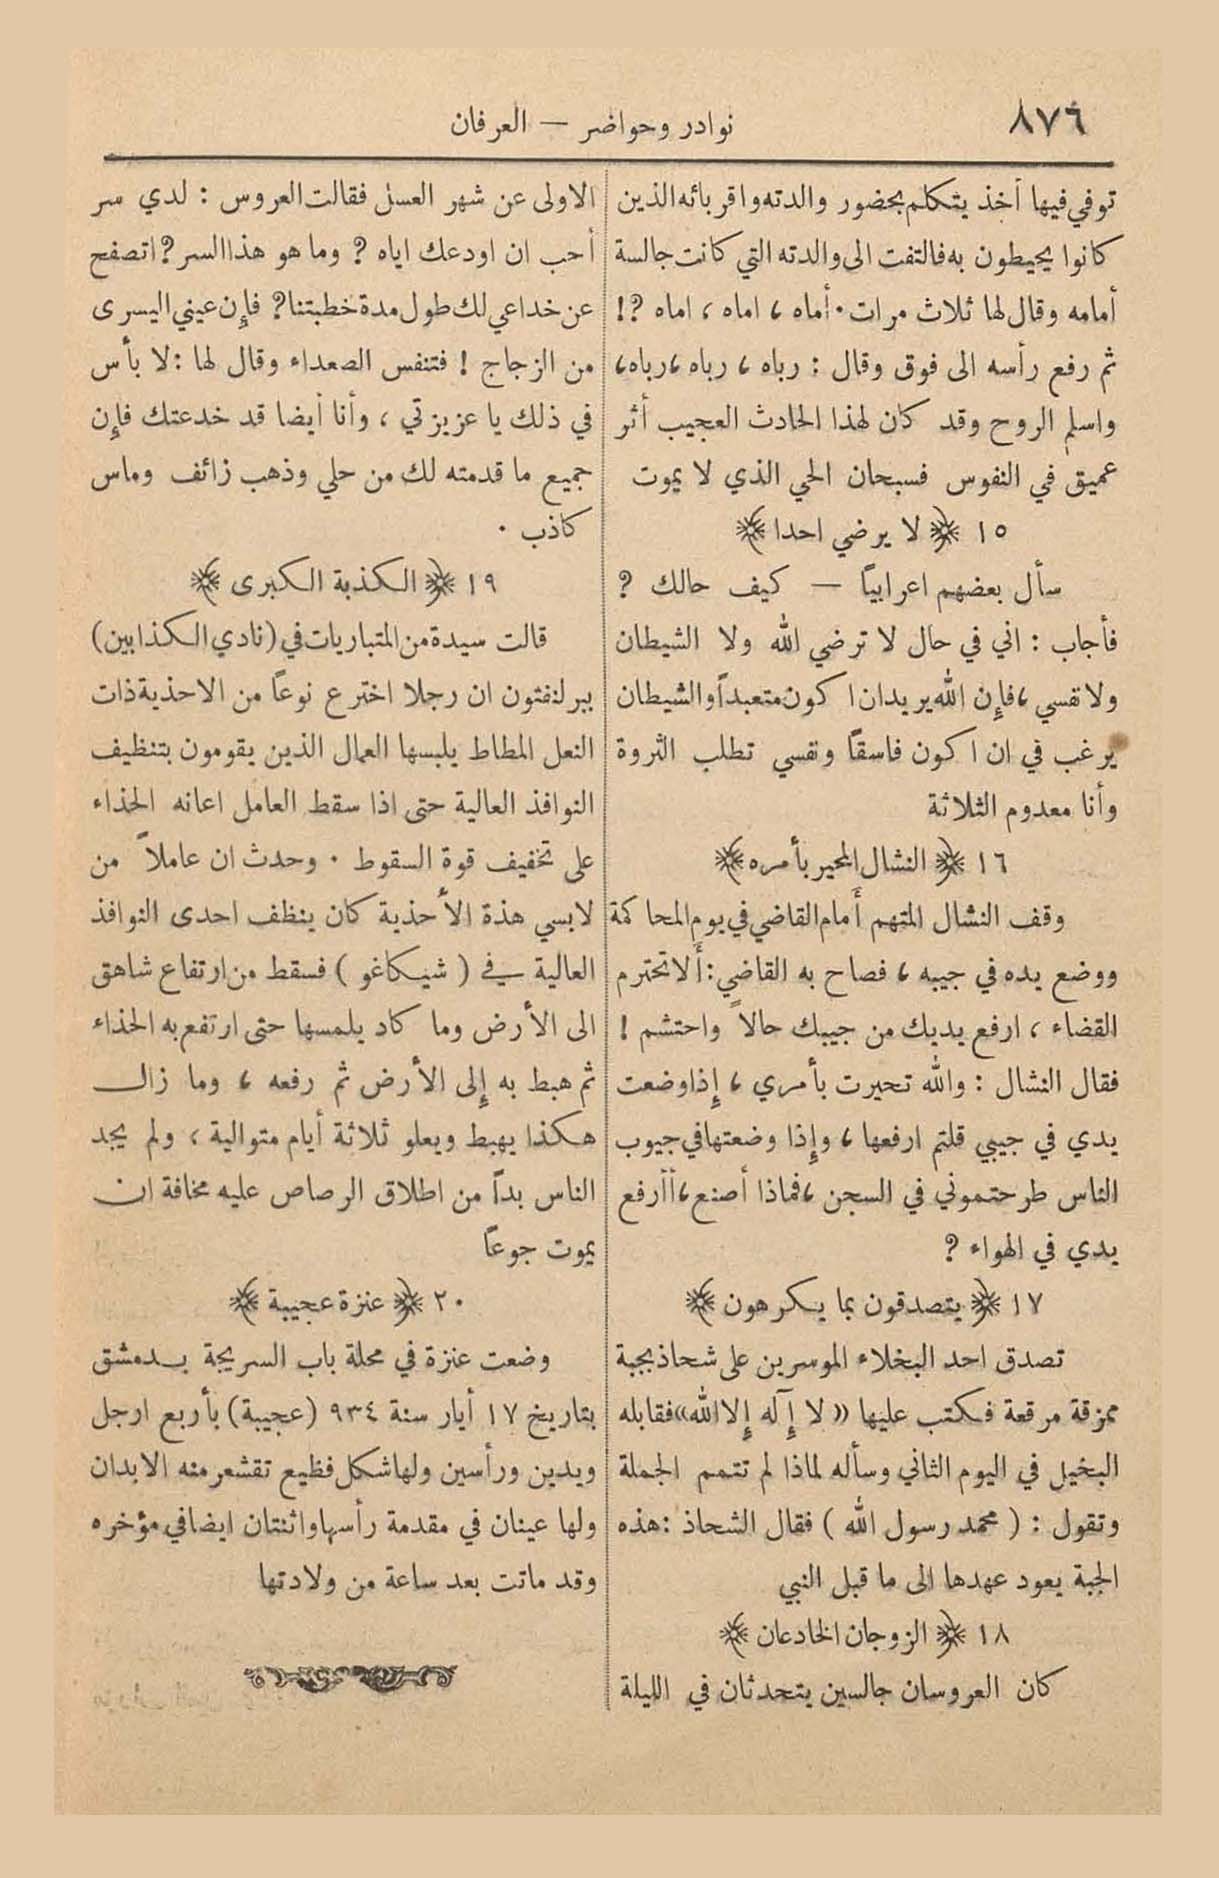 ٨٧٦
نوادر وحواضر — العرفان
توفي فيها أخذ يتكلم بحضور والدته واقربائه الذين
كانوا يحيطون به فالتفت الى والدته التي كانت جالسة
أمامه وقال لها ثلاث مرات. أماه ، اماه ، اماه ؟!
ثم رفع رأسه الى فوق وقال : رباه ، رباه ، رباه ،
واسلم الروح وقد كان لهذا الحادث العجيب أثر
عميق في النفوس فسبحان الحي الذي لا يموت
١٥ ﴿ لا يرضي احدا ﴾
سأل بعضهم اعرابياً — كيف حالك ؟
فأجاب : اني في حال لا ترضي الله ولا الشيطان
ولا نفسي ، فإن الله يريد ان اكون متعبداً والشيطان
يرغب في ان اكون فاسقاً ونفسي تطلب الثروة
وأنا معدوم الثلاثة
١٦ ﴿ النشال المحير بأمره ﴾
وقف النشال المتهم أمام القاضي في يوم المحاكمة
ووضع يده في جيبه ، فصاح به القاضي : ألا تحترم
القضاء ، ارفع يديك من جيبك حالاً واحتشم !
فقال النشال : والله تحيرت بأمري ، إذا وضعت
يدي في جيبي قلتم ارفعها ، وإذا وضعتها في جيوب
الناس طرحتموني في السجن ، فماذا أصنع ، أأرفع
يدي في الهواء ؟
١٧ ﴿ يتصدقون بما يكرهون ﴾
تصدق احد البخلاء الموسرين على شحاذ بجبة
ممزقة مرقعة فكتب عليها «لا إله إلا الله» فقابله
البخيل في اليوم الثاني وسأله لماذا لم تتمم الجملة
وتقول : ( محمد رسول الله ) فقال الشحاذ : هذه
الجبة يعود عهدها الى ما قبل النبي
١٨ ﴿ الزوجان الخادعان ﴾
كان العروسان جالسين يتحدثان في الليلة
الاولى عن شهر العسل فقالت العروس : لدي سر
أحب ان اودعك اياه ؟ وما هو هذا السر ؟ اتصفح
عن خداعي لك طول مدة خطبتنا ؟ فإن عيني اليسرى
من الزجاج ! فتنفس الصعداء وقال لها : لا بأس
في ذلك يا عزيزتي ، وأنا أيضا قد خدعتك فإن
جميع ما قدمته لك من حلي وذهب زائف وماس
كاذب .
١٩ ﴿ الكذبة الكبرى ﴾
قالت سيدة من المتباريات في (نادي الكذابين)
ببرلنغتون ان رجلا اخترع نوعاً من الاحذية ذات
النعل المطاط يلبسها العمال الذين يقومون بتنظيف
النوافذ العالية حتى اذا سقط العامل اعانه الحذاء
على تخفيف قوة السقوط . وحدث ان عاملاً من
لابسي هذة الأحذية كان ينظف احدى النوافذ
العالية في ( شيكاغو ) فسقط من ارتفاع شاهق
الى الأرض وما كاد يلمسها حتى ارتفع به الحذاء
ثم هبط به إلى الأرض ثم رفعه ، وما زال
هكذا يهبط ويعلو ثلاثة أيام متوالية ، ولم يجد
الناس بداً من اطلاق الرصاص عليه مخافة ان
يموت جوعاً
٢٠ ﴿ عنزة عجيبة ﴾
وضعت عنزة في محلة باب السريجة بدمشق
بتاريخ ١٧ أيار سنة ٩٣٤ (عجيبة) بأربع ارجل
ويدين ورأسين ولها شكل فظيع تقشعر منه الابدان
ولها عينان في مقدمة رأسها واثنتان ايضا في مؤخره
وقد ماتت بعد ساعة من ولادتها